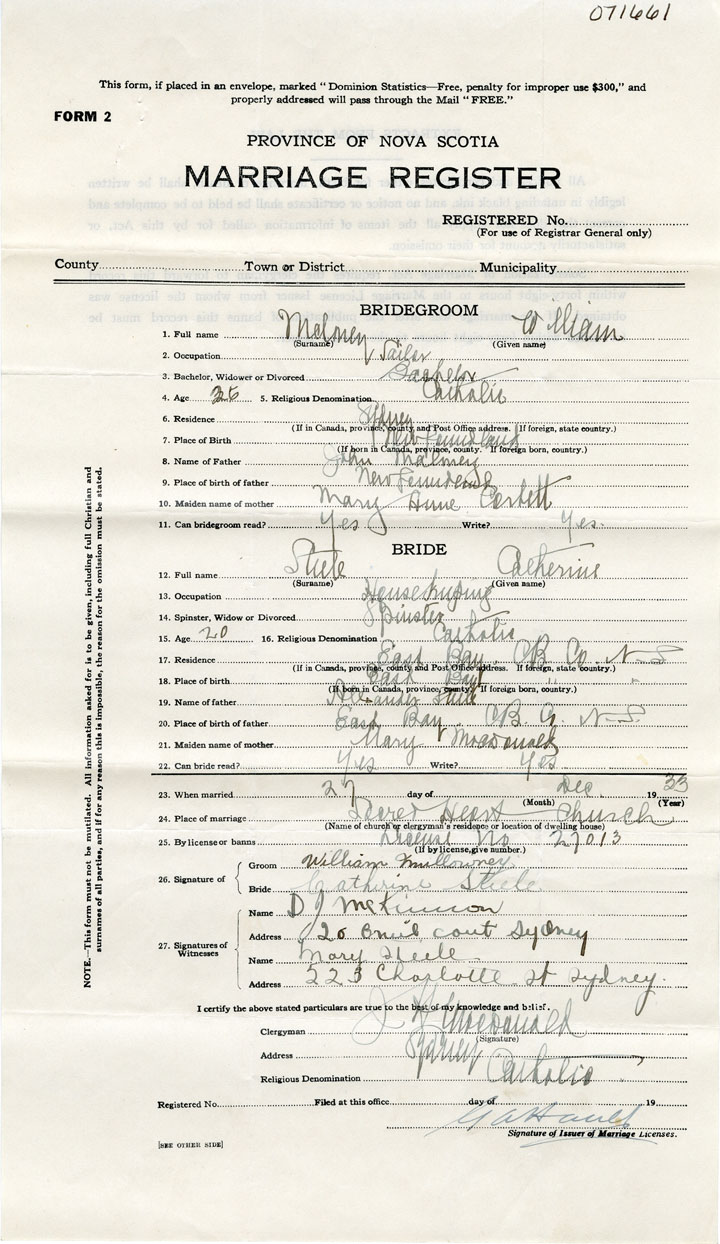 071661
This form, if placed in an envelope, marked "Dominion Statistics—Free, penalty for improper use $300," and
properly addressed will pass through the Mail "FREE."
FORM 2
PROVINCE OF NOVA SCOTIA
MARRIAGE REGISTER
REGISTERED No.
(For use of Registrar General only)
County Town or District Municipality
BRIDEGROOM
1. Full name Maloney William
(Surname) (Given name)
2. Occupation Sailor
3. Bachelor, Widower or Divorced Bachelor
4. Age 26 5. Religious Denomination Catholic
6. Residence Sydney
(If in Canada, province, county and Post Office address. If foreign, state country.)
7. Place of Birth Newfoundland
(If born in Canada, province, county. If foreign born, country.)
8. Name of Father John Maloney
9. Place of birth of father Newfoundland
10. Maiden name of mother Mary Anne Corbett
11. Can bridegroom read? Yes Write? Yes.
BRIDE
12. Full name Steele Catherine
(Surname) (Given name)
13. Occupation Housekeeping
14. Spinster, Widow or Divorced Spinster
15. Age 20 16. Religious Denomination Catholic
17. Residence East Bay CB Co. N-S
(If in Canada, province, county and Post Office address. If foreign, state country.)
18. Place of Birth East Bay " "
(If born in Canada, province, county. If foreign born, country.)
19. Name of father Alexander Steele
20. Place of birth of father East Bay CB Co. N-S.
21. Maiden name of mother Mary Macdonald
22. Can bride read? Yes Write? Yes
23. When married 27 day of Dec 1933
(Month) (Year)
24. Place of marriage Sacred Heart Church
(Name of church or clergyman's residence or location of dwelling house)
25. By license or banns License No 27013
(If by license, give number.)
26. Signature of Groom William
Bride Catherine Steele
27. Signatures of Witnesses
Name D J McKinnon
Address 20 court Sydney
Name Mary Steele
Address 223 Charlotte st Sydney.
I certify the above stated particulars are true to the best of my knowledge and belief.
Clergyman Macdonald
(Signature)
Address Sydney
Religious Denomination Catholic
Registered No. Filed at this office day of 19
Signature of Issuer of Marriage Licenses.
[SEE OTHER SIDE]
NOTE.—This form must not be mutilated. All information asked for is to be given, including full Christian and
surnames of all parties, and if for any reason this is impossible, the reason for the omission must be stated.